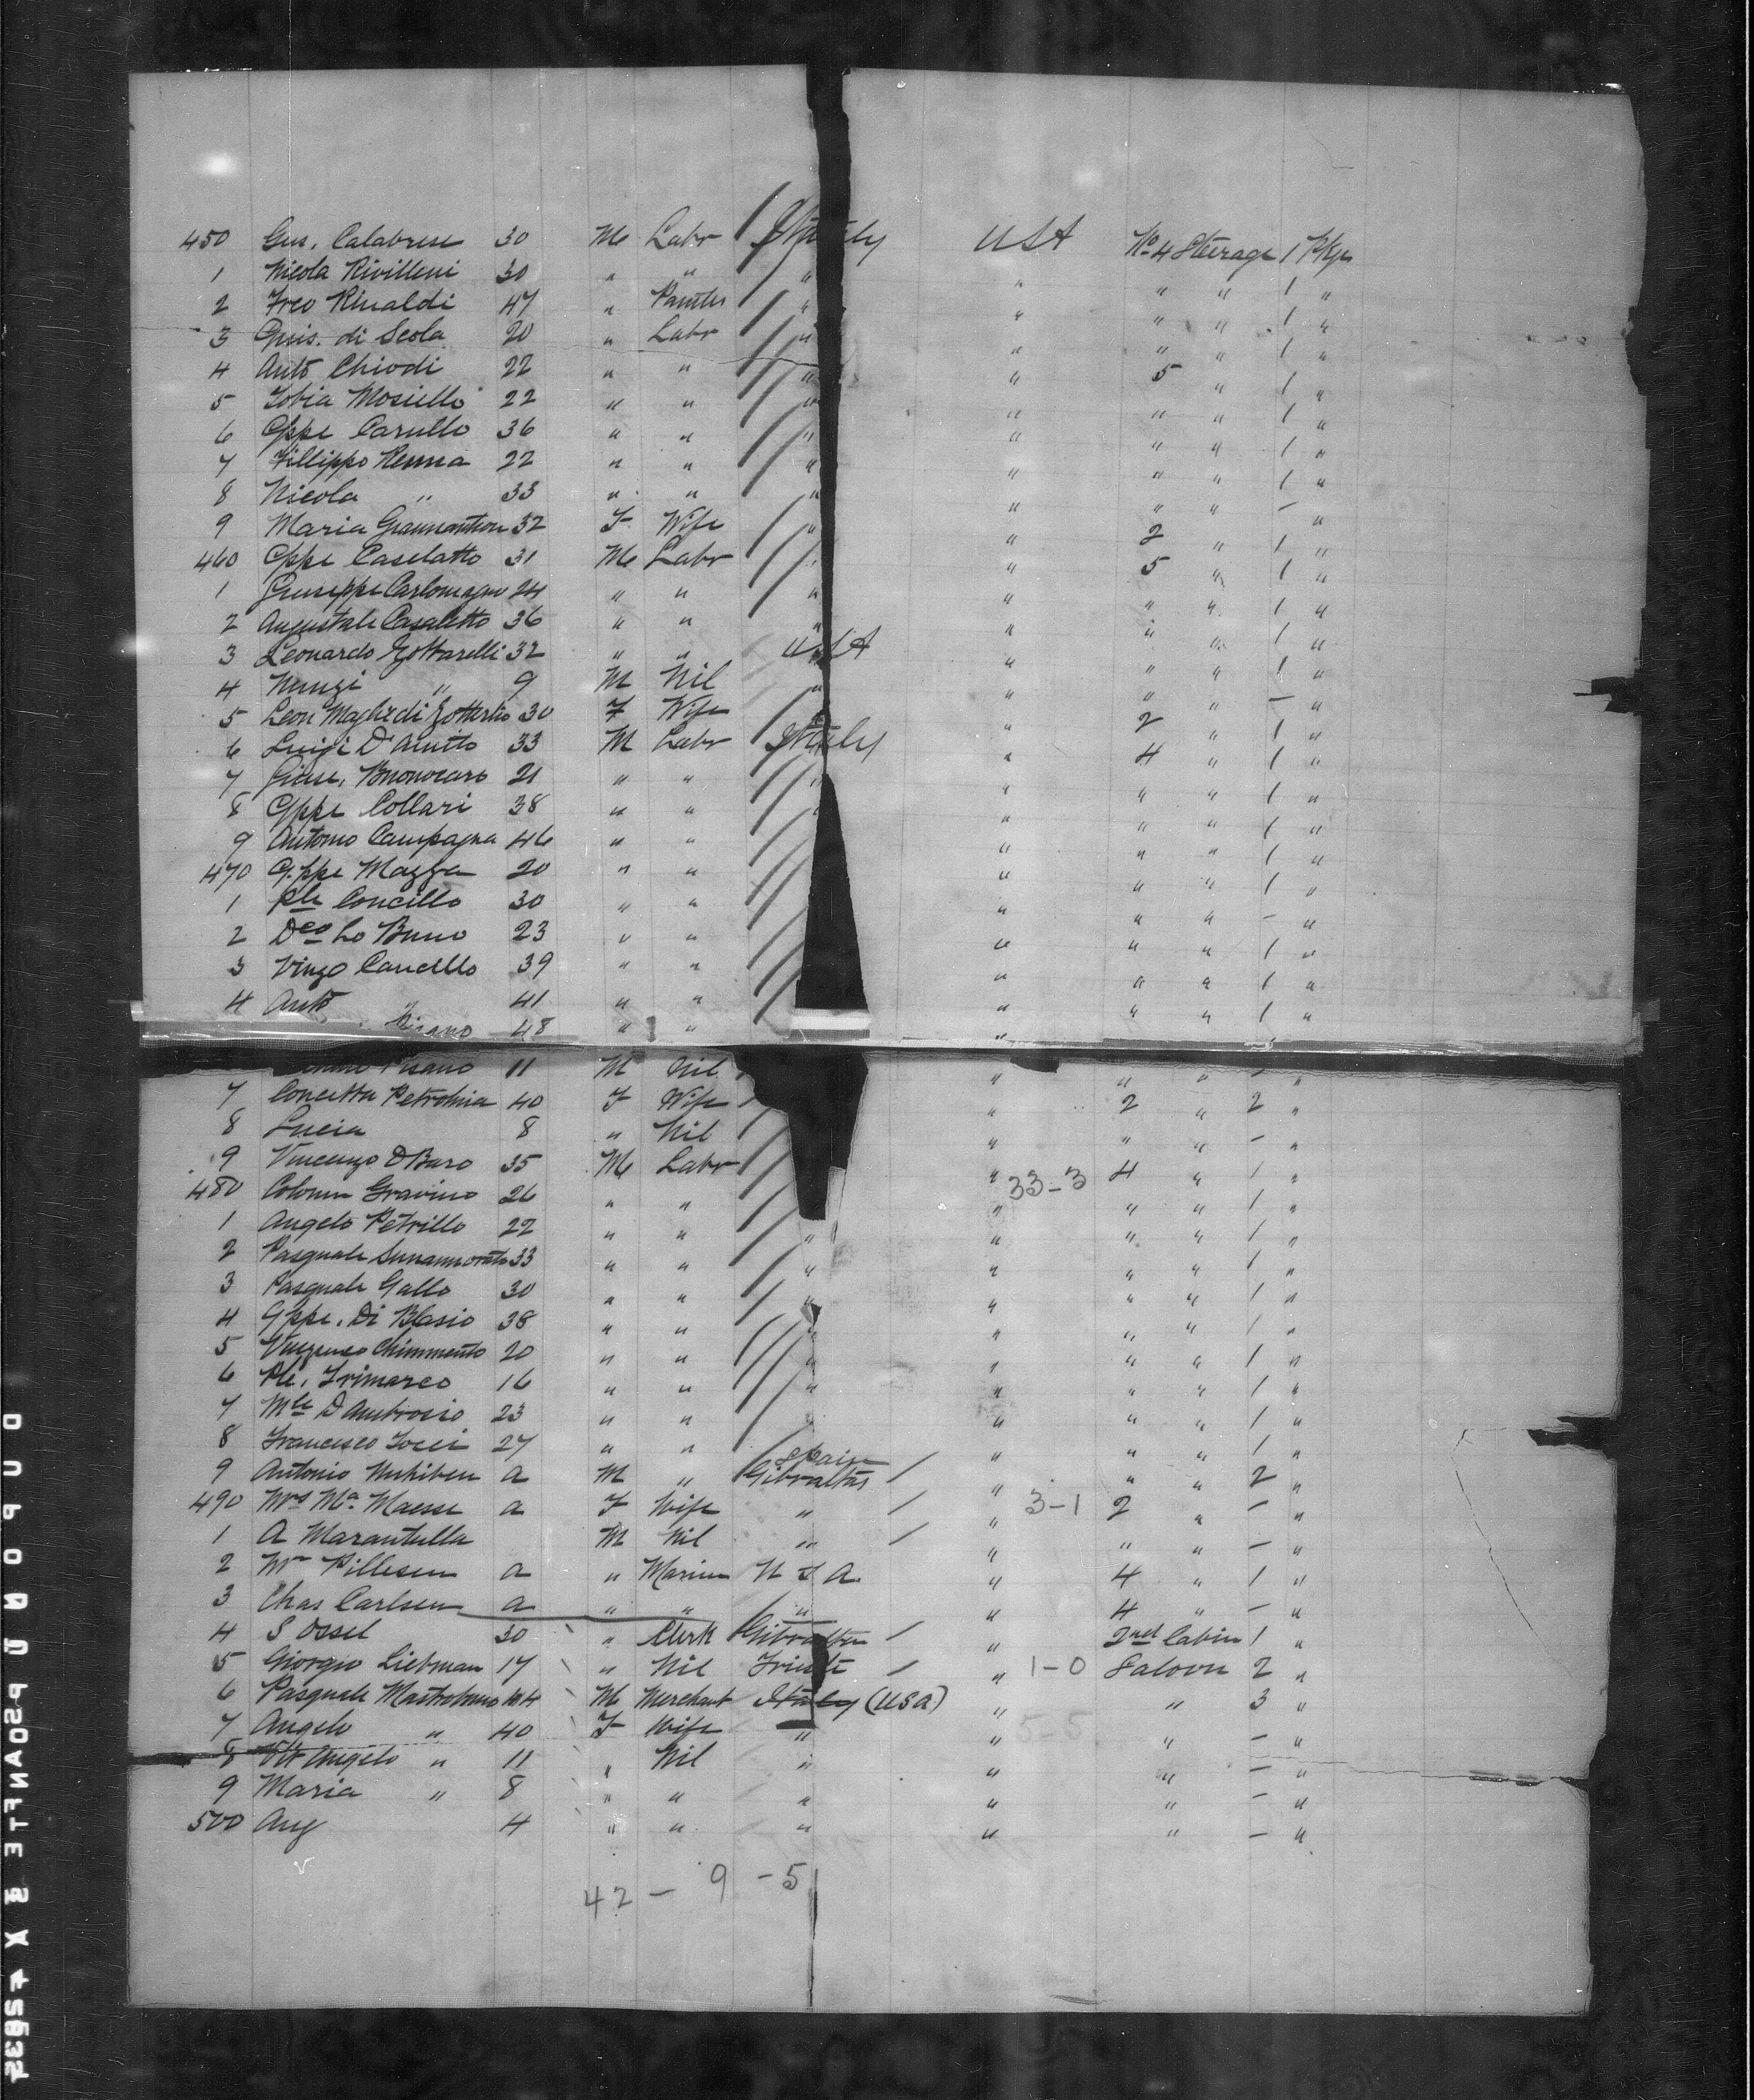 450 Gus. Calabrese 30 M Labr Italy USA No. 4 Steerage 1 Pkge
1 Nicola Rivilleni 30 " " " " " " 1 "
2 Frco Rinaldi 47 " Painter " " " " 1 "
3 Guis. di Scola 20 " Labr " " " " 1 "
4 Anto Chiodi 22 " " " " 5 " 1 "
5 Tobia Mosielli 22 " " " " " " 1 "
6 Gppe Carullo 36 " " " " " " 1 "
7 Fillippo Renna 22 " " " " " " 1 "
8 Nicola " 33 " " " " " " - "
9 Maria 32 F Wife " " 2 " 1 "
460 Gppe Caselatto 31 M Labr " " 5 " 1 "
1 Giuseppe Carlomagno 24 " " " " " " 1 "
2 Augustale Casaletto 36 " " " " " " 1 "
3 Leonardo Zottarelli 32 " " USA " " " 1 "
4 Nunzi " 9 M Nil " " " " - "
5 Leon 30 F Wife " 2 " 1 "
6 Luigi D'Amito 33 M Labr Italy " 4 " 1 "
7 Giuse. Bnonocaro 21 " " " " " " 1 "
8 Gppe Collari 38 " " " " " " 1 "
9 Antonio Campagna 46 " " " " " 1 "
470 Gppe Mazza 20 " " " " " 1 "
1 Ple Concillo 30 " " " " " - "
2 Dco Lo Bruno 23 " " " " " 1 "
3 Vinzo Cancello 39 " " " " " 1 "
4 Anto 41 " " " " " 1 "
48 " " "
Pisano 11 M Nil " " " - "
7 Concetta Petrolnia 40 F Wife " 2 " 2 "
8 Lucia 8 " Nil " " " - "
9 Vincenzo D Baro 35 M Labr " 33-3 4 " 1 "
480 Colomn Gravino 26 " " " " " 1 "
1 Angelo Petrillo 22 " " " " " " 1 "
2 Pasquale 33 " " " " " " 1 "
3 Pasquale Gallo 30 " " " " " " 1 "
4 Gppe. Di Blasio 38 " " " " " " 1 "
5 Chimmento 20 " " " " " " 1 "
6 Ple. Trimarco 16 " " " " " " 1 "
7 Mle D Ambrosio 23 " " " " " 1 "
8 Francesco Tocci 27 " " " " " 1 "
9 Antonio a M " Spain Gibraltar " " " 2 "
490 Mrs Ma. Maesse a F Wife " " 3-1 2 " - "
1 A Marantulla M Nil " " " " - "
2 Wm Pillesen a " Marine U S A " 4 " 1 "
3 Chas Carlsen a " " " " 4 " - "
4 S Ossel 30 " Clerk Gibraltar " 2nd Cabin 1 "
5 Giorgio Liebman 17 " Nil Trieste " 1-0 Saloon 2 "
6 Pasquale 44 M Merchant Italy (USA) " " 3 "
7 Angelo " 40 F Wife " " 5-5 " - "
8 Vit Angelo " 11 " Nil " " " - "
9 Maria " 8 " " " " " - "
500 Ang 4 " " " " " - "
42 - 9 - 5